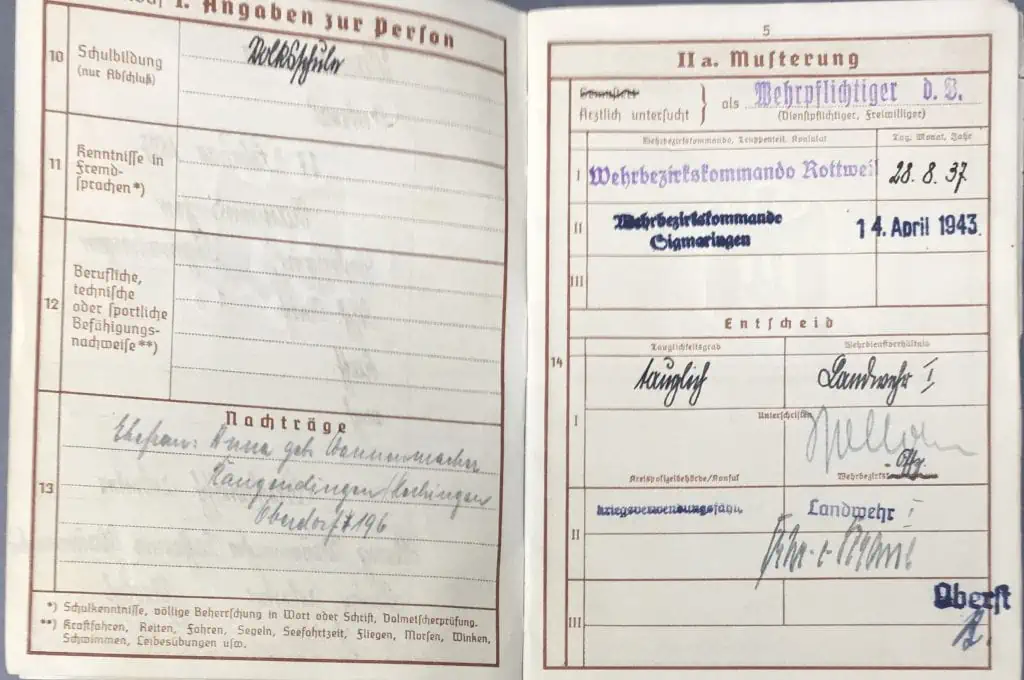 I. Angaben zur Person
10
Schulbildung
(nur Abschluß)
Volksschule
11
Kenntnisse in
Fremd-
sprachen*)
12
Berufliche,
technische
oder sportliche
Befähigungs-
nachweise**)
13
Nachträge
Ehefrau: Anna geb. Wannenmacher
Rangendingen/Hechingen
Oberdorf 196
*) Schulkenntnisse, völlige Beherrschung in Wort oder Schrift, Dolmetscherprüfung.
**) Kraftfahren, Reiten, Fahren, Segeln, Seefahrtzeit, Fliegen, Morsen, Winken,
Schwimmen, Leibesübungen usw.
5
II a. Musterung
Gemustert
Ärztlich untersucht } als Wehrpflichtiger d. B.
(Dienstpflichtiger, Freiwilliger)
Wehrbezirkskommando, Truppenteil, Konsulat
Tag, Monat, Jahr
I Wehrbezirkskommando Rottweil 28. 8. 37
II Wehrbezirkskommando
Sigmaringen
14. April 1943
III
14
Entscheid
Tauglichkeitsgrad
Wehrdienstverhältnis
I tauglich Landwehr I
Unterschriften
Kreispolizeibehörde/Konsul
Wehrbezirks
II kriegsverwendungsfähig Landwehr I
III
Oberst